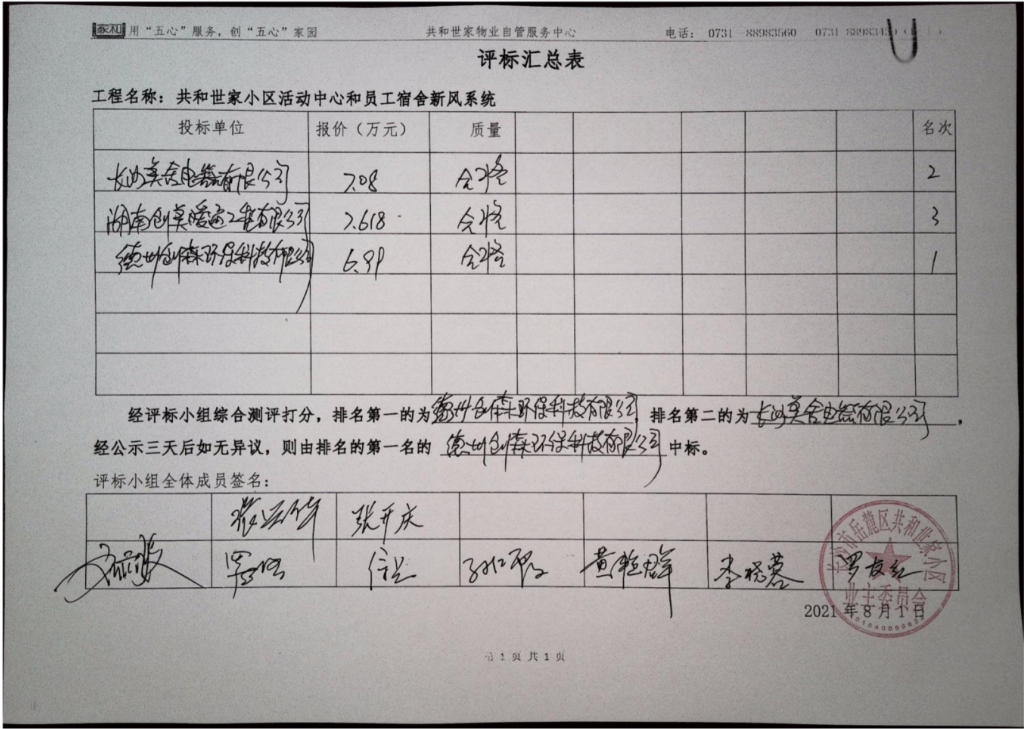 家和 用“五心”服务，创“五心”家园 共和世家物业自管服务中心 电话： 0731 88983560 0731
评标汇总表
工程名称：共和世家小区活动中心和员工宿舍新风系统
投标单位 报价（万元） 质量 名次
长沙美舍电器有限公司 7.08 合格 2
湖南创美暖通工程有限公司 7.618 合格 3
德州创森环保科技有限公司 6.99 合格 1
经评标小组综合测评打分，排名第一的为德州创森环保科技有限公司，排名第二的为长沙美舍电器有限公司，
经公示三天后如无异议，则由排名的第一名的 德州创森环保科技有限公司 中标。
评标小组全体成员签名：
张开庆
黄艳群 李晓蓉
长沙市岳麓区共和世家小区
业主委员会
2021 年 8 月 1 日
第 1 页 共 1 页